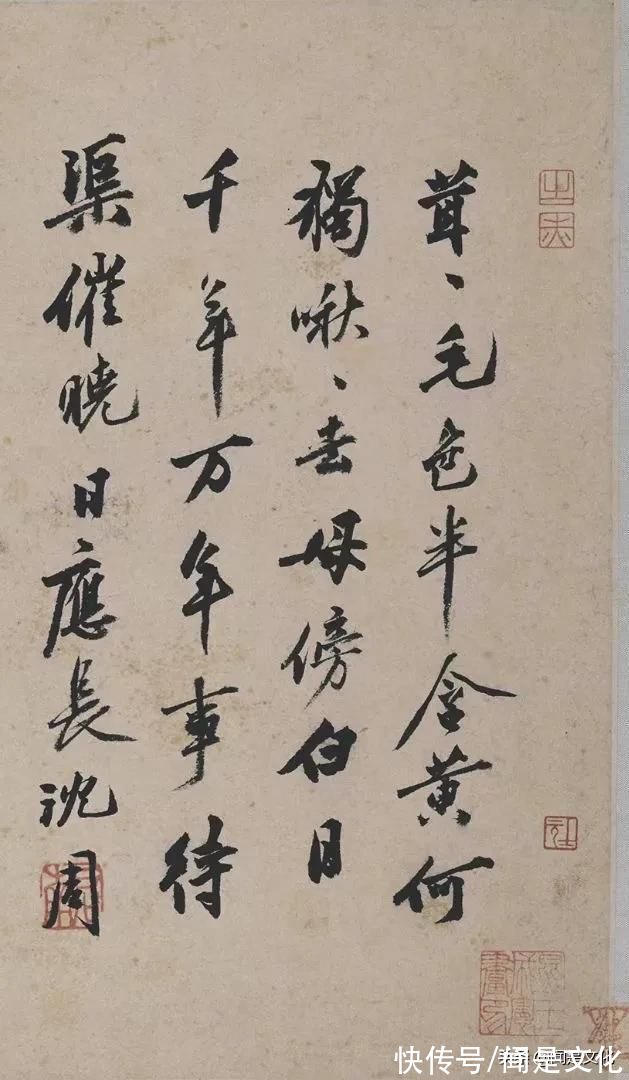 茸々毛色半含黄何
獨啾々去母傍白日
千年万年事待
渠催曉日應長沈周
快传号/闻是文化